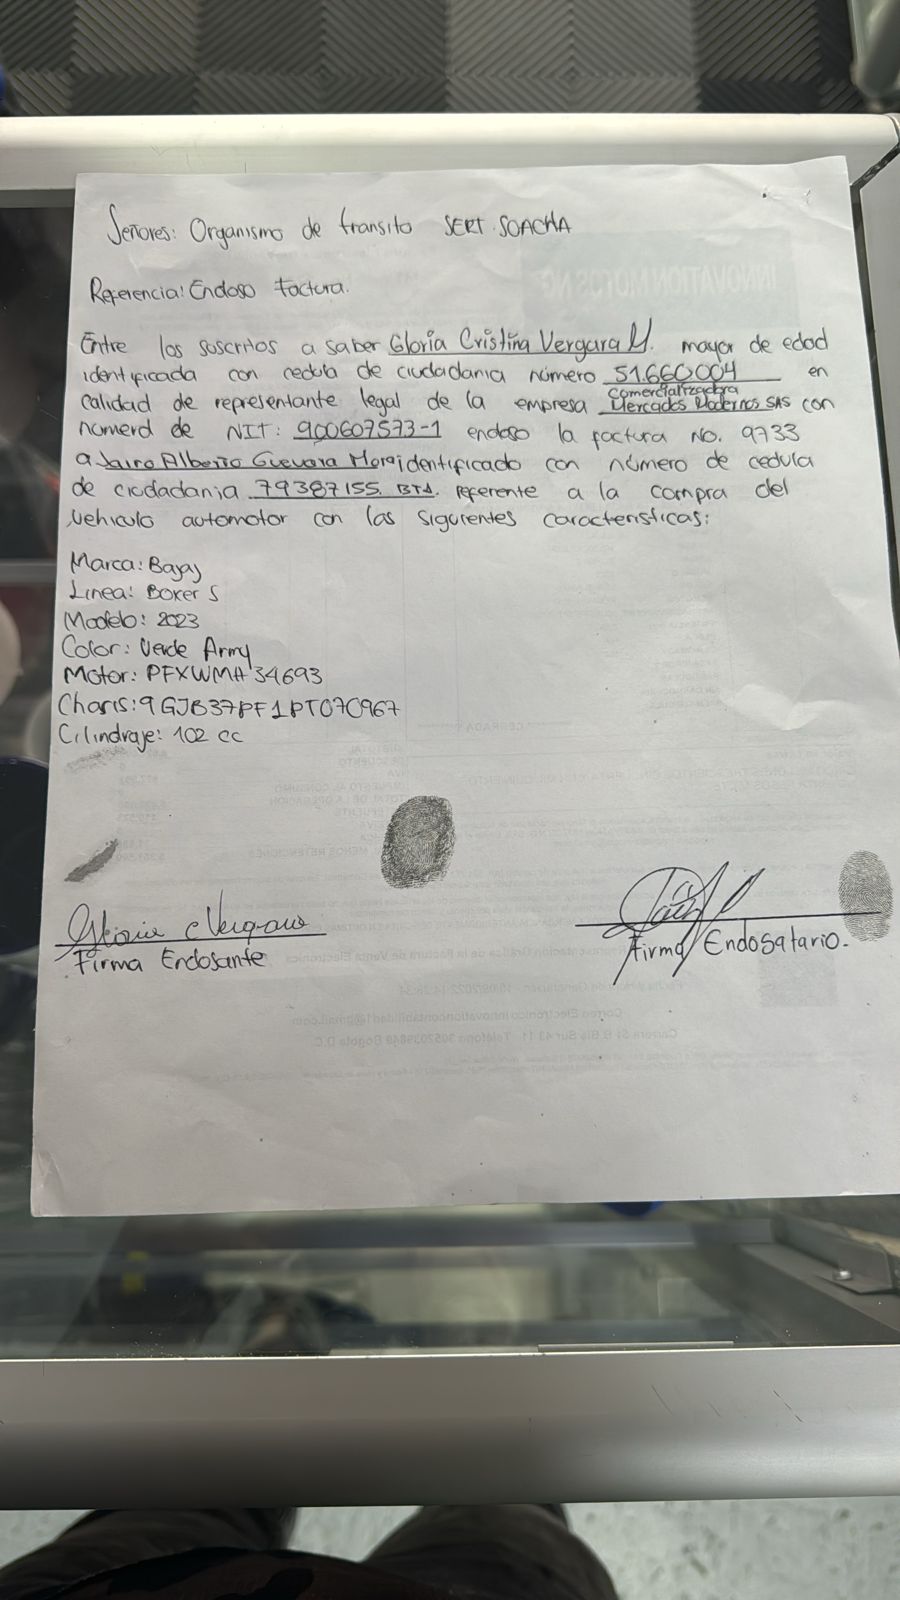 Señores: Organismo de transito SERT. SOACHA
Referencia: Endoso Factura.
Entre los suscritos a saber Gloria Cristina Vergara M. mayor de edad
identificada con cedula de ciudadania número 51.660.004 en
calidad de representante legal de la empresa Comercializadora Mercados Modernos SAS con
numero de NIT: 900607573-1 endoso la factura No. 9733
a Jairo Alberto Guevara Mora identificado con número de cedula
de ciudadania 79387155. BTA. referente a la compra del
vehiculo automotor con las siguientes caracteristicas:
Marca: Bajaj
Linea: Boxer S
Modelo: 2023
Color: Verde Army
Motor: PFXWMH34693
Chasis: 9GJB37PF1PT070967
Cilindraje: 102 cc
Gloria C Vergara
Firma Endosante
Firma Endosatario.